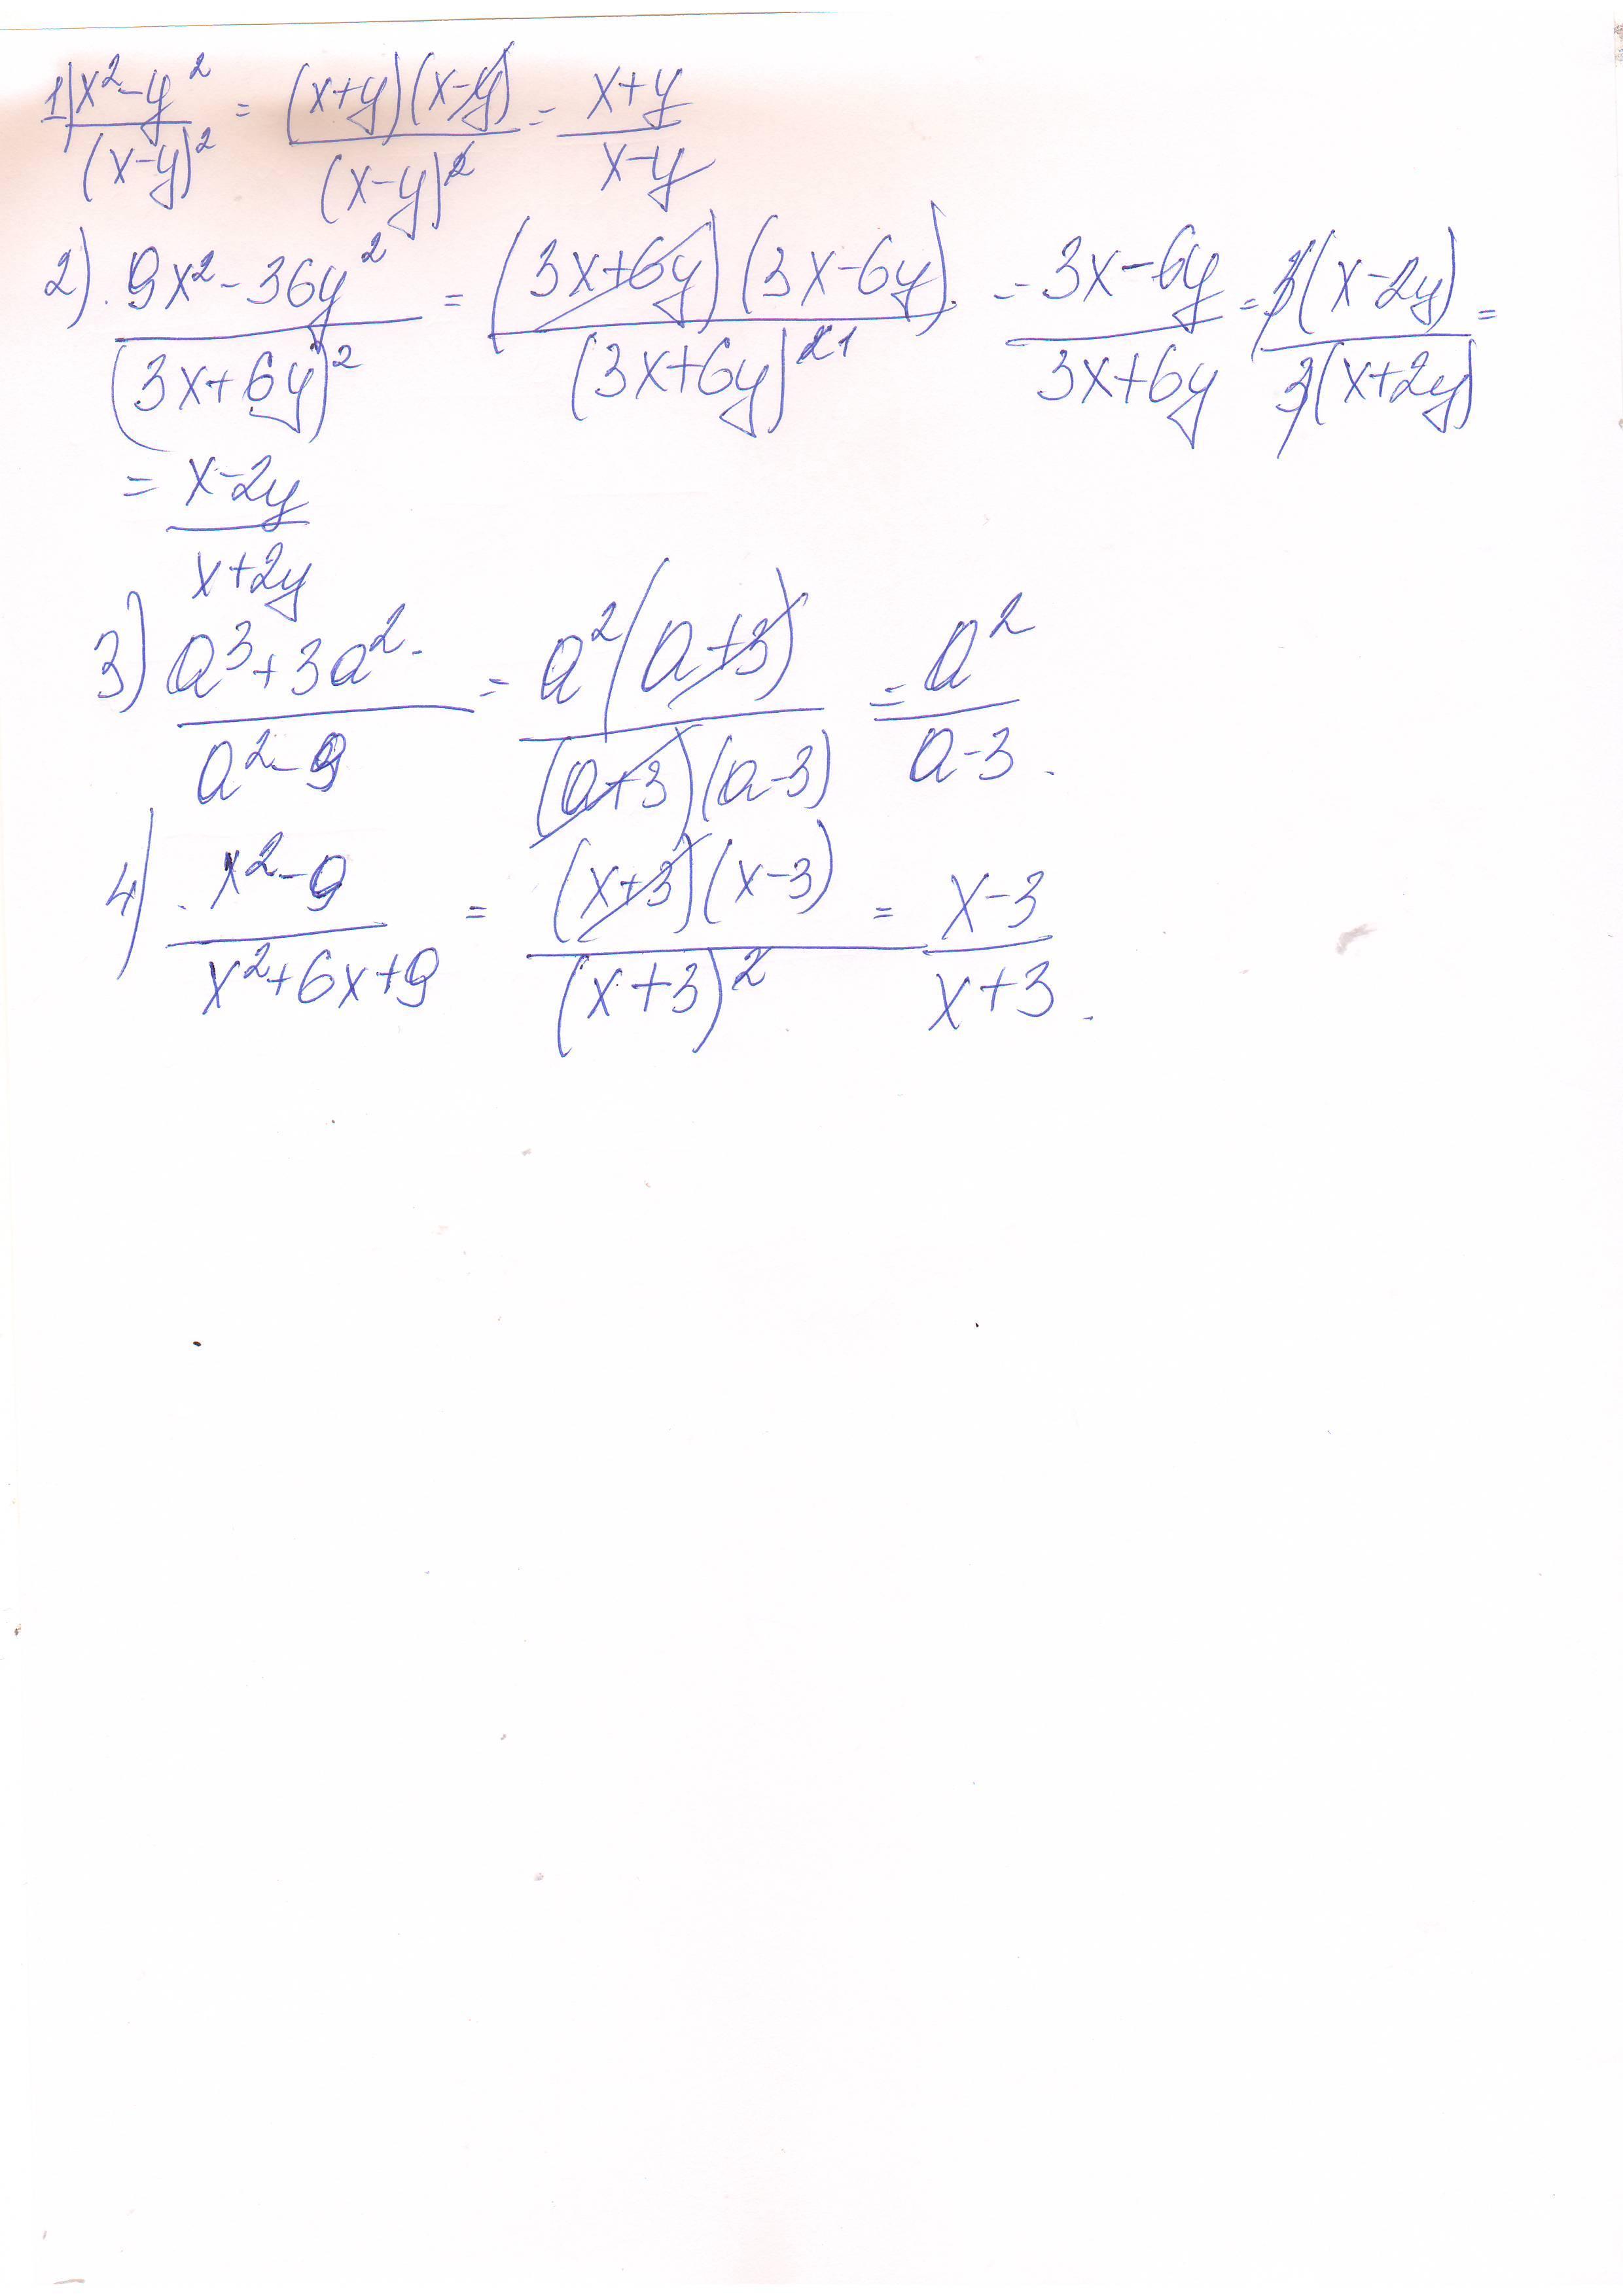 1) (x²-y²)/(x-y)² = (x+y)(x-y)/(x-y)² = (x+y)/(x-y)
2) (9x²-36y²)/(3x+6y)² = (3x+6y)(3x-6y)/(3x+6y)²¹ = (3x-6y)/(3x+6y) = 3(x-2y)/3(x+2y) =
= (x-2y)/(x+2y)
3) (a³+3a²)/(a²-9) = a²(a+3)/(a+3)(a-3) = a²/(a-3).
4) (x²-9)/(x²+6x+9) = (x+3)(x-3)/(x+3)² = (x-3)/(x+3).